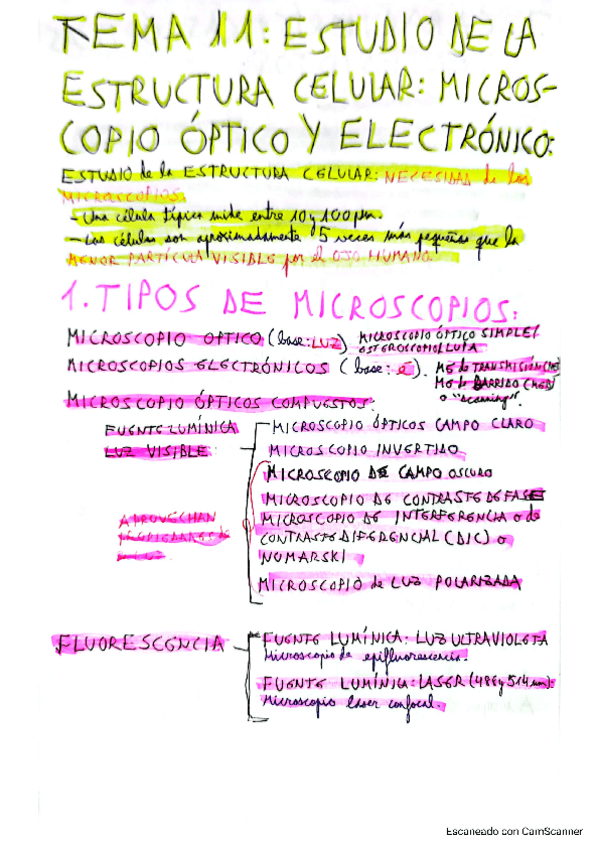 TEMA 11: ESTUDIO DE LA
ESTRUCTURA CELULAR: MICROS-
COPIO ÓPTICO Y ELECTRÓNICO:
ESTUDIO de la ESTRUCTURA CELULAR: NECESIDAD de los
MICROSCOPIOS
- Una célula típica mide entre 10 y 100 µm.
- Las células son aproximadamente 5 veces más pequeñas que la
MENOR PARTÍCULA VISIBLE por el OJO HUMANO.
1. TIPOS DE MICROSCOPIOS:
MICROSCOPIO OPTICO (base: LUZ) MICROSCOPIO ÓPTICO SIMPLE/
ESTEROSCOPIO/LUPA
MICROSCOPIOS ELECTRÓNICOS (base: e⁻). ME de TRANSMISIÓN (MET)
ME de BARRIDO (MEB)
o "scanning".
MICROSCOPIO ÓPTICOS COMPUESTOS:
FUENTE LUMÍNICA
LUZ VISIBLE
MICROSCOPIO ÓPTICOS CAMPO CLARO
MICROSCOPIO INVERTIDO
MICROSCOPIO DE CAMPO OSCURO
MICROSCOPIO DE CONTRASTE DE FASE
MICROSCOPIO DE INTERFERENCIA o de
CONTRASTE DIFERENCIAL (DIC) o
NOMARSKI
MICROSCOPIO de LUZ POLARIZADA
APROVECHAN
FLUORESCENCIA
FUENTE LUMÍNICA: LUZ ULTRAVIOLETA
Microscopio de epifluorescencia.
FUENTE LUMÍNICA: LASER (488 y 514 nm):
Microscopio láser confocal.
Escaneado con CamScanner